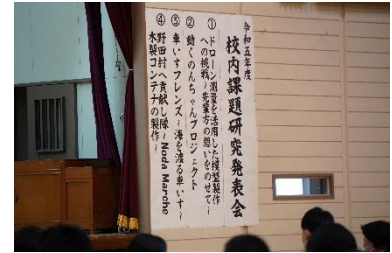 令和五年度
校内課題研究発表会
①ドローン測量を活用した模型製作
への挑戦～先輩方の想いをのせて～
②動くのんちゃんプロジェクト
③車いすフレンズ～海を渡る車いす～
④野田村へ貢献し隊～Noda Marche
木製コンテナの製作～